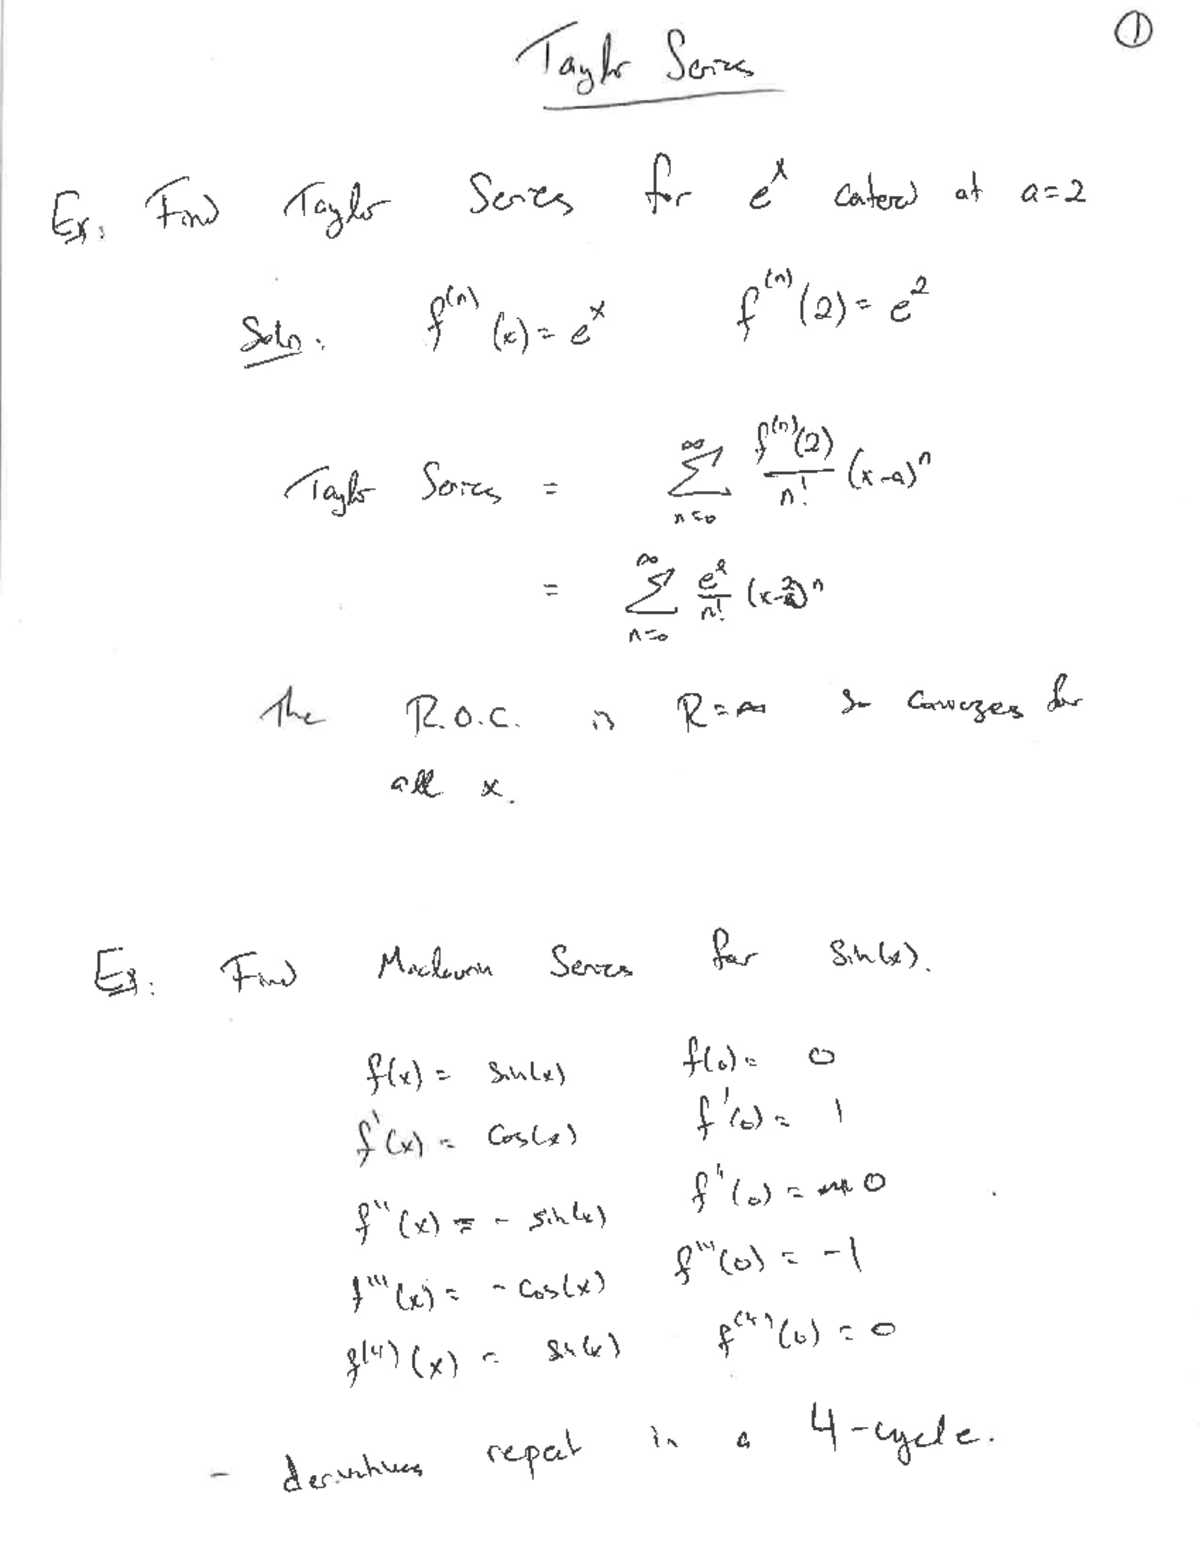 ①
Taylor Series
Ex: Find Taylor Series for e^x centered at a=2
Soln: f^(n)(x) = e^x f^(n)(2) = e^2
Taylor Series = ∑_{n=0}^{∞} f^(n)(2)/n! (x-a)^n
= ∑_{n=0}^{∞} e^2/n! (x-2)^n
The R.O.C. is R=∞ so converges for
all x.
Ex: Find Maclaurin Series for sin(x).
f(x) = sin(x) f(0) = 0
f'(x) = cos(x) f'(0) = 1
f''(x) = - sin(x) f''(0) = 0
f'''(x) = - cos(x) f'''(0) = -1
f^(4)(x) = sin(x) f^(4)(0) = 0
- derivatives repeat in a 4-cycle.